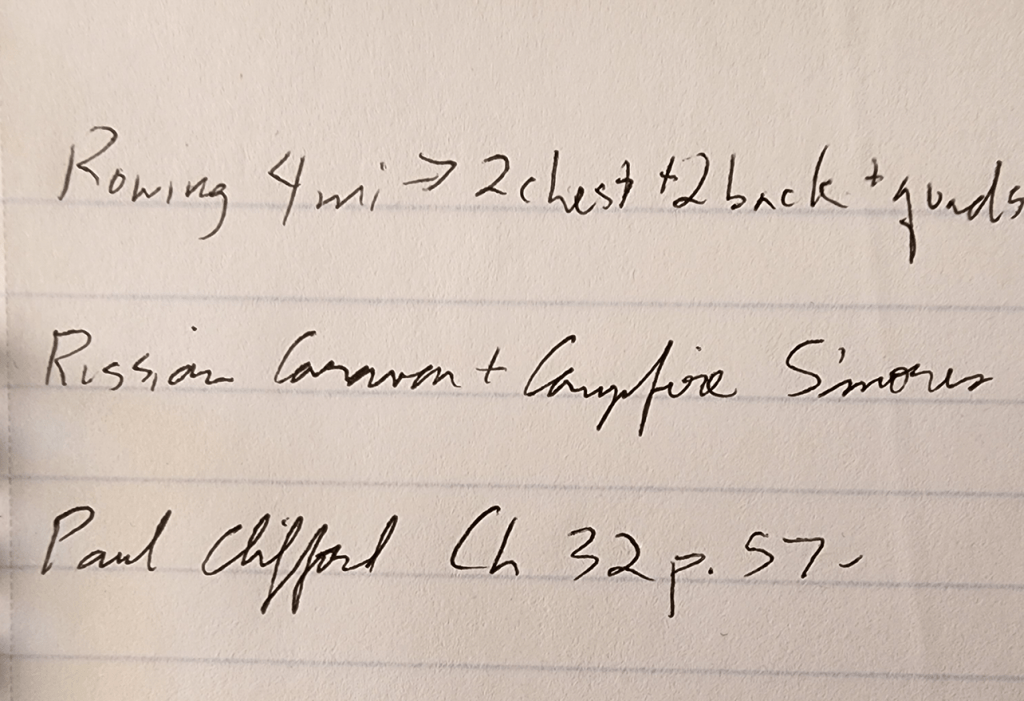 Rowing 4 mi → 2 chest + 2 back + quads
Rissian Caravan + Campfire S'mores
Paul Clifford Ch 32 p. 57-